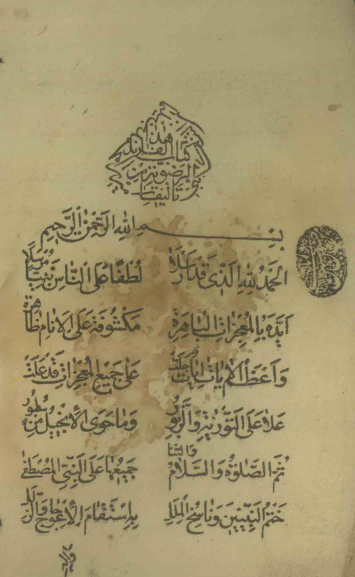 هذا
كتاب الفرائد
الرضوية من
تاليفات
بسم الله الرحمن الرحيم
الحمد لله الذي قد ارسلا لطفا على الناس نبيا مرسلا
ايده بالمعجزات الباهرة مكشوفة على الانام ظاهرة
واعظم الايات ايات على جميع المعجزات قد علت
علا على التورية والزبور وما حوى الانجيل من سطور
ثم الصلوة والثنا والسلام جميعها على النبي المصطفى
ختم النبيين وناسخ الملل باستقام الاعوجاج